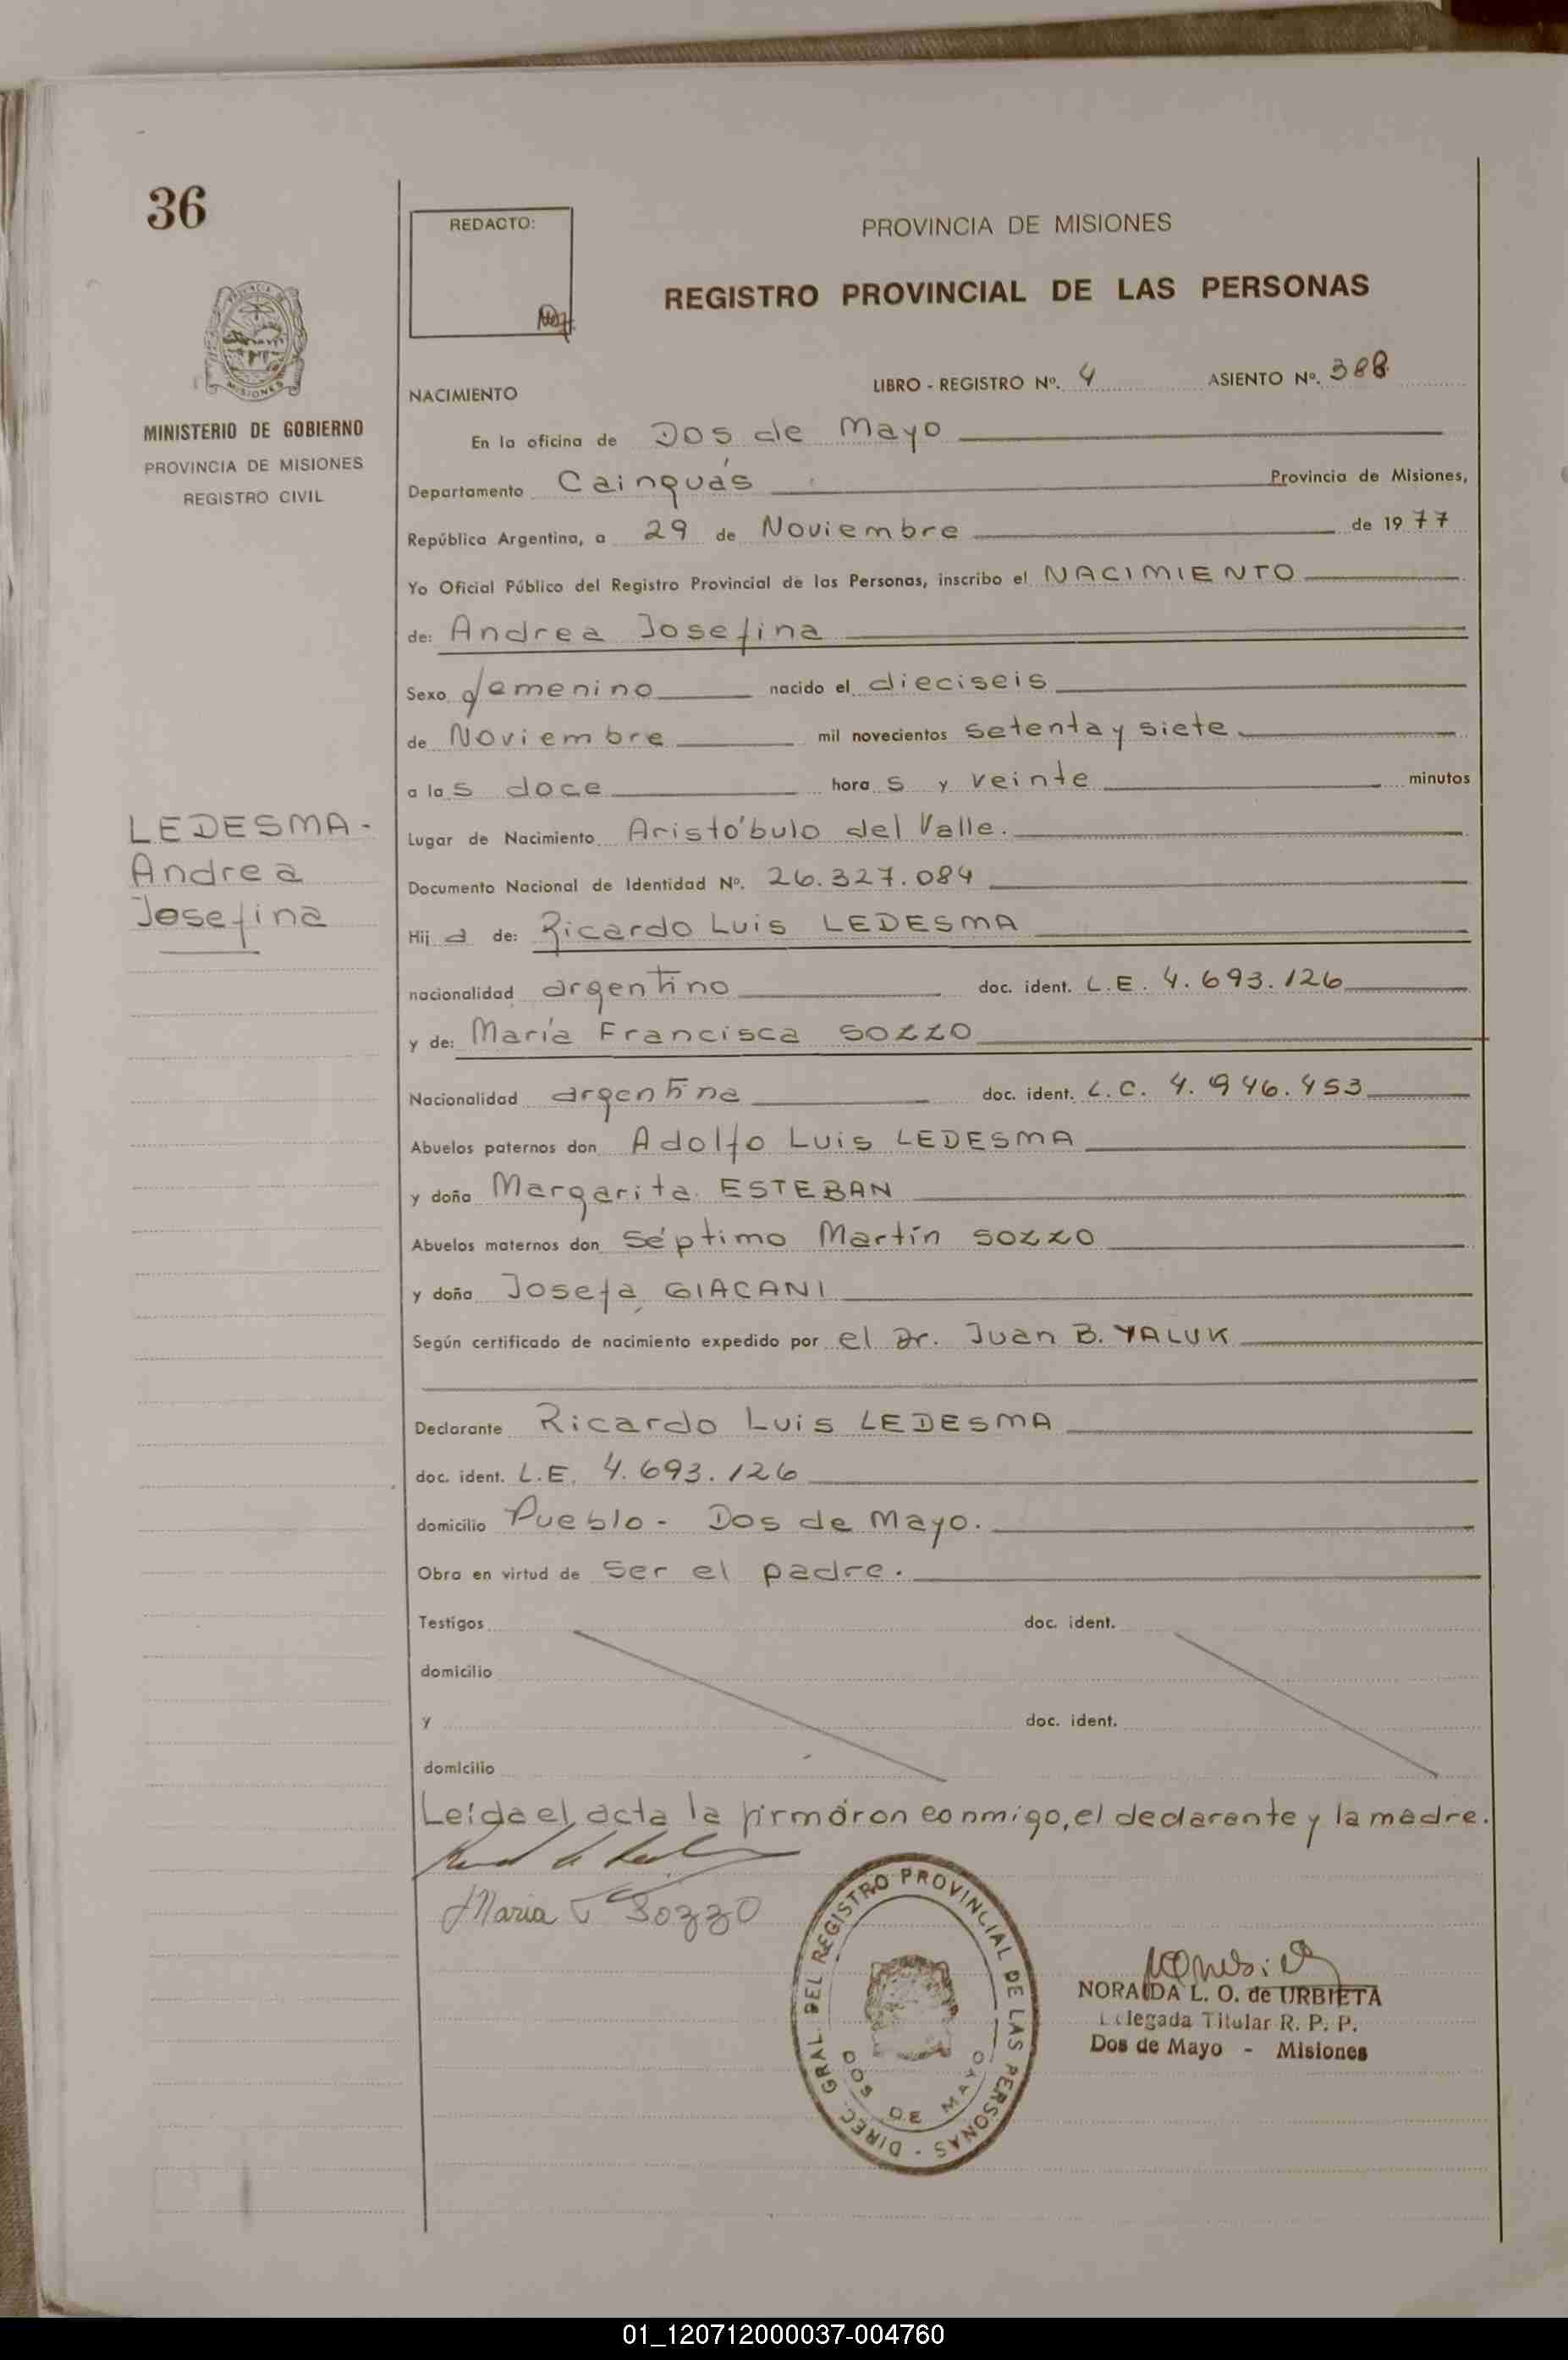 36
REDACTO:
PROVINCIA DE MISIONES
REGISTRO PROVINCIAL DE LAS PERSONAS
MISIONES
MINISTERIO DE GOBIERNO
PROVINCIA DE MISIONES
REGISTRO CIVIL
NACIMIENTO LIBRO - REGISTRO Nº. 4 ASIENTO Nº. 388
En la oficina de Dos de Mayo
Departamento Cainguás Provincia de Misiones,
República Argentina, a 29 de Noviembre de 1977
Yo Oficial Público del Registro Provincial de las Personas, inscribo el NACIMIENTO
de: Andrea Josefina
Sexo femenino nacido el dieciseis
de Noviembre mil novecientos setenta y siete
a las doce horas y veinte minutos
LEDESMA -
Andrea
Josefina
Lugar de Nacimiento Aristóbulo del Valle.
Documento Nacional de Identidad Nº. 26.327.084
Hija de: Ricardo Luis LEDESMA
nacionalidad argentino doc. ident. L.E. 4.693.126
y de: María Francisca SOZZO
Nacionalidad argentina doc. ident. L.C. 4.946.453
Abuelos paternos don Adolfo Luis LEDESMA
y doña Margarita ESTEBAN
Abuelos maternos don Séptimo Martín SOZZO
y doña Josefa GIACANI
Según certificado de nacimiento expedido por el Dr. Juan B. YALUK
Declarante Ricardo Luis LEDESMA
doc. ident. L.E. 4.693.126
domicilio Pueblo - Dos de Mayo.
Obra en virtud de ser el padre.
Testigos doc. ident.
domicilio
y doc. ident.
domicilio
Leída el acta la firmáron conmigo, el declarante y la madre.
Maria F Sozzo
DIREC. GRAL. DEL REGISTRO PROVINCIAL DE LAS PERSONAS -
DOS DE MAYO
NORAIDA L. O. de URBIETA
Delegada Titular R. P. P.
Dos de Mayo - Misiones
01_120712000037-004760